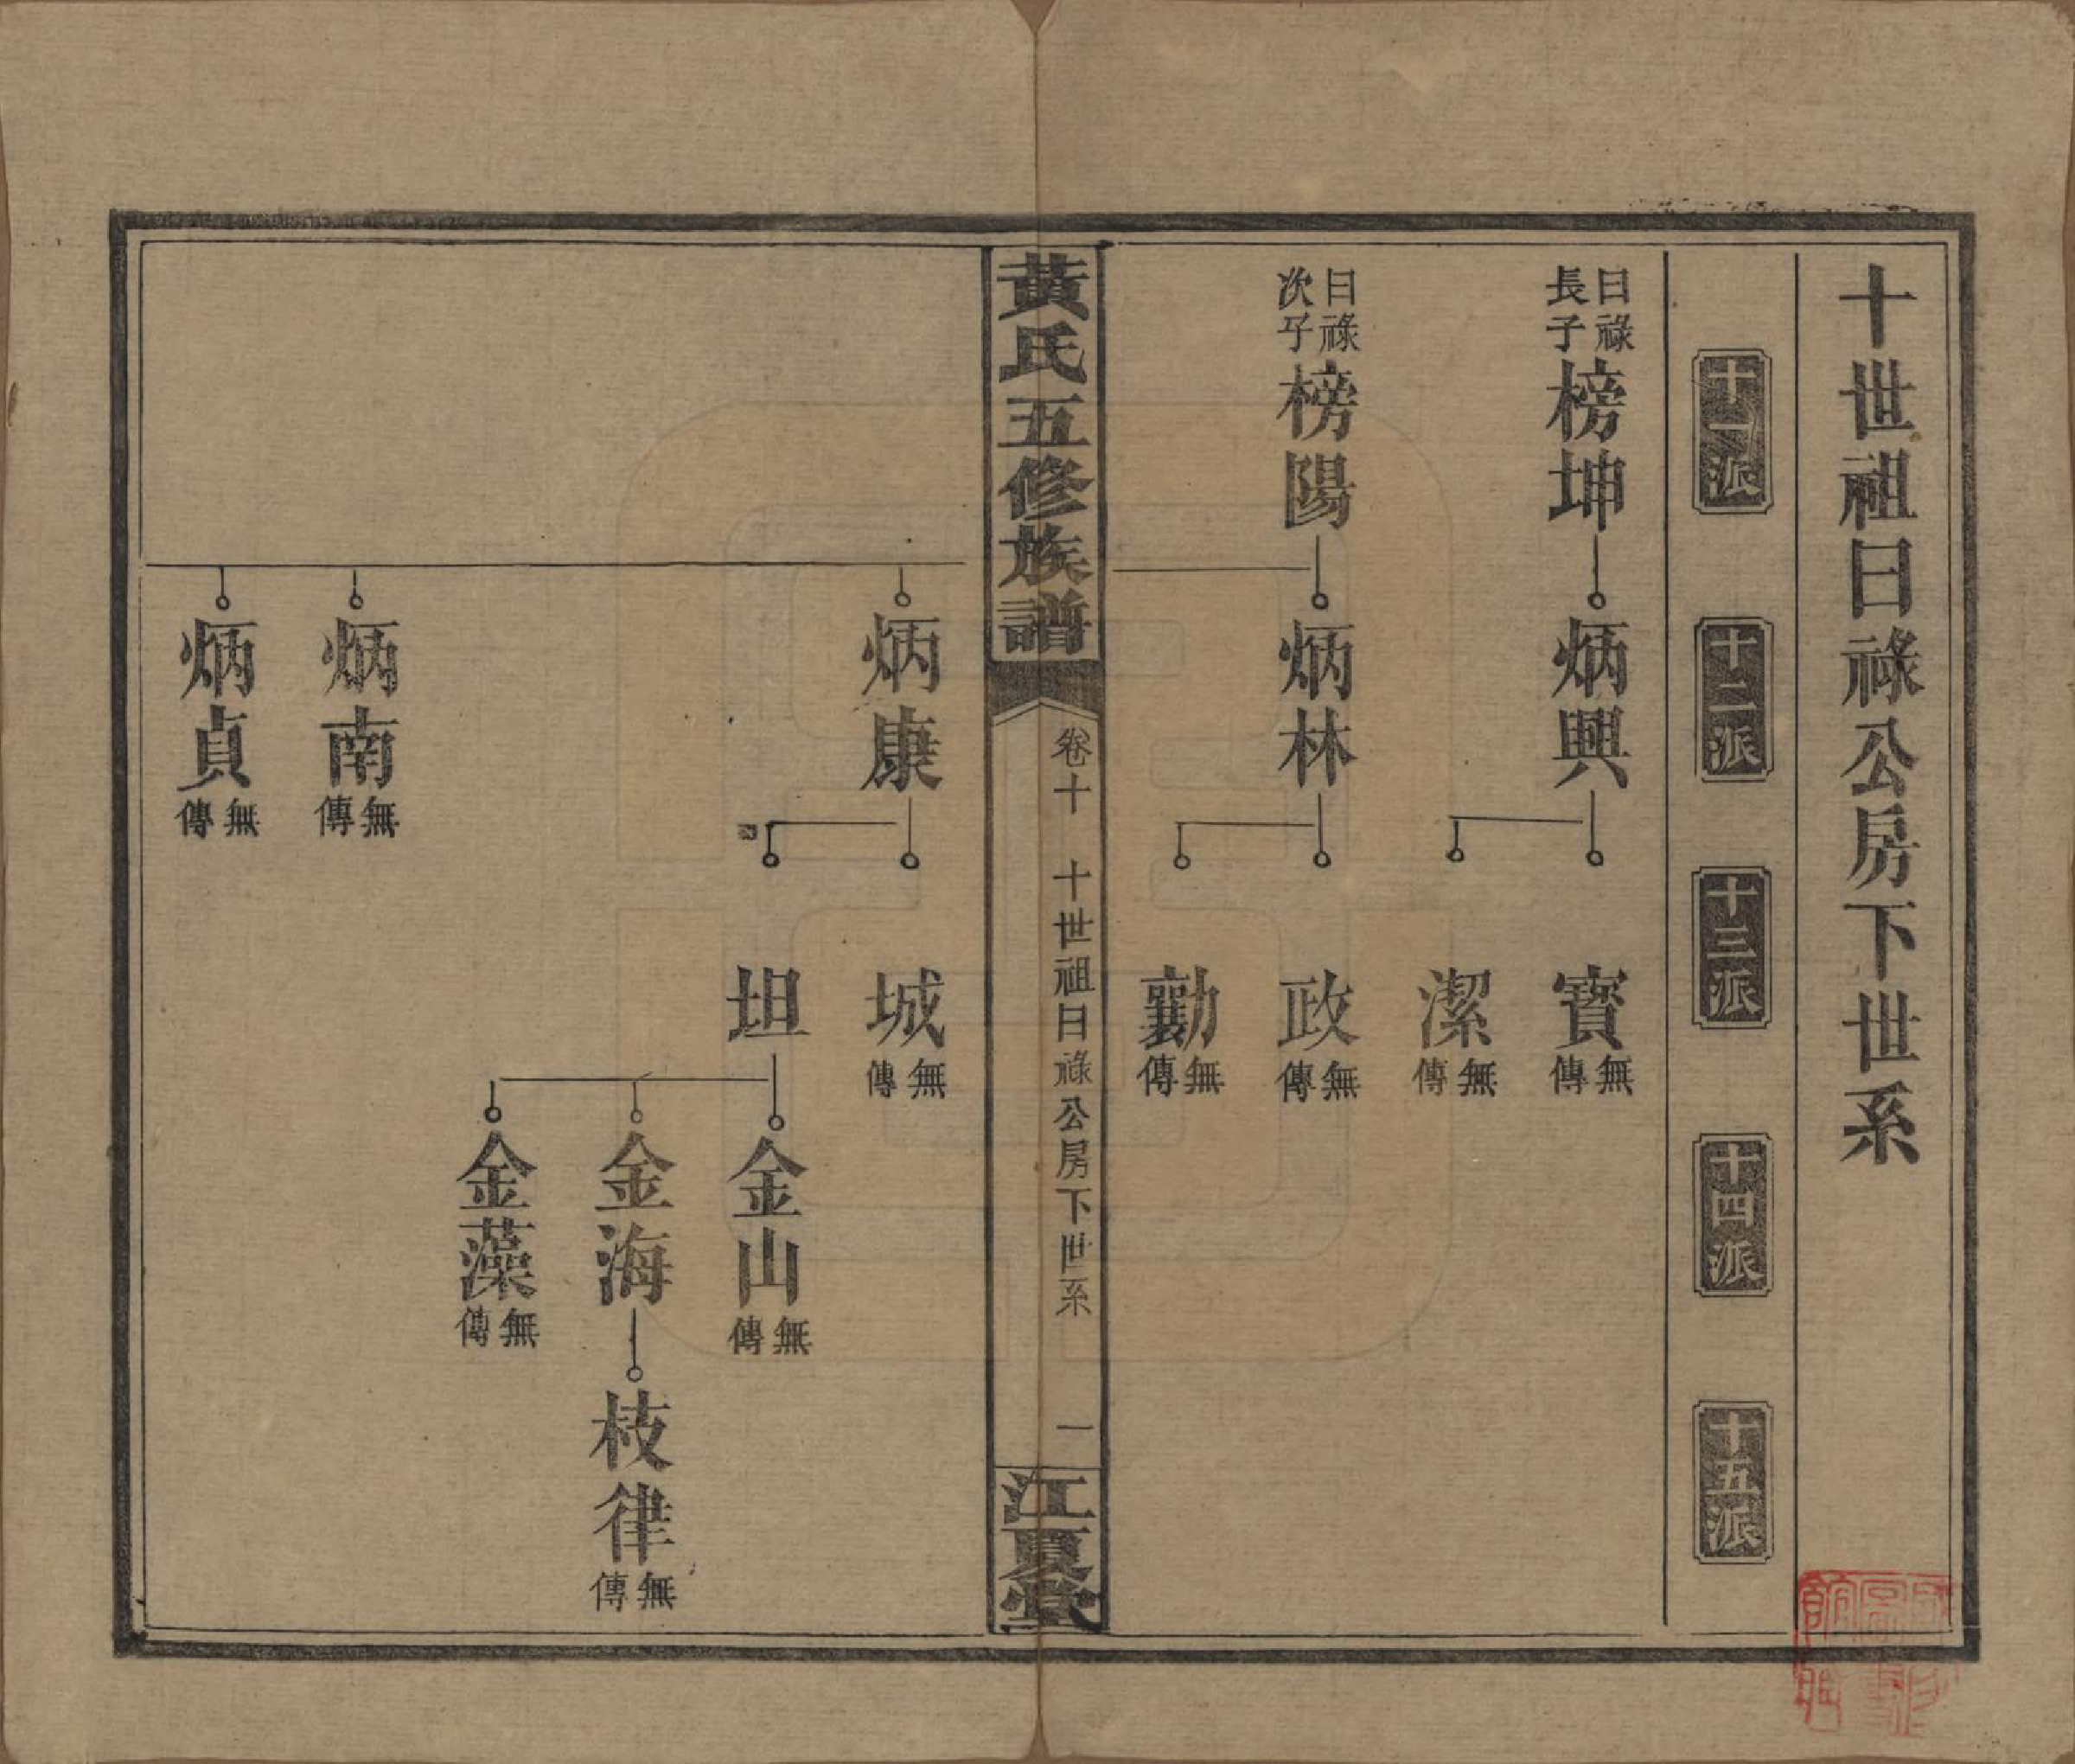 十世祖曰祿公房下世系
十一派
十二派
十三派
十四派
十五派
曰祿長子
榜坤
炳興
寳
無傳
潔
無傳
曰祿次子
榜陽
炳林
政
無傳
勷
無傳
黃氏五修族譜
卷十　十世祖曰祿公房下世系
一
江夏堂
炳康
城
無傳
坦
金山
無傳
金海
枝律
無傳
金藻
無傳
炳南
無傳
炳貞
無傳